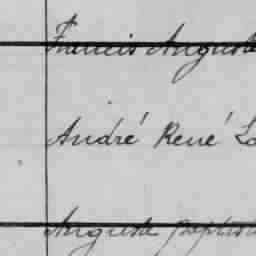 Francis Auguste
André René Lo
Auguste Baptis